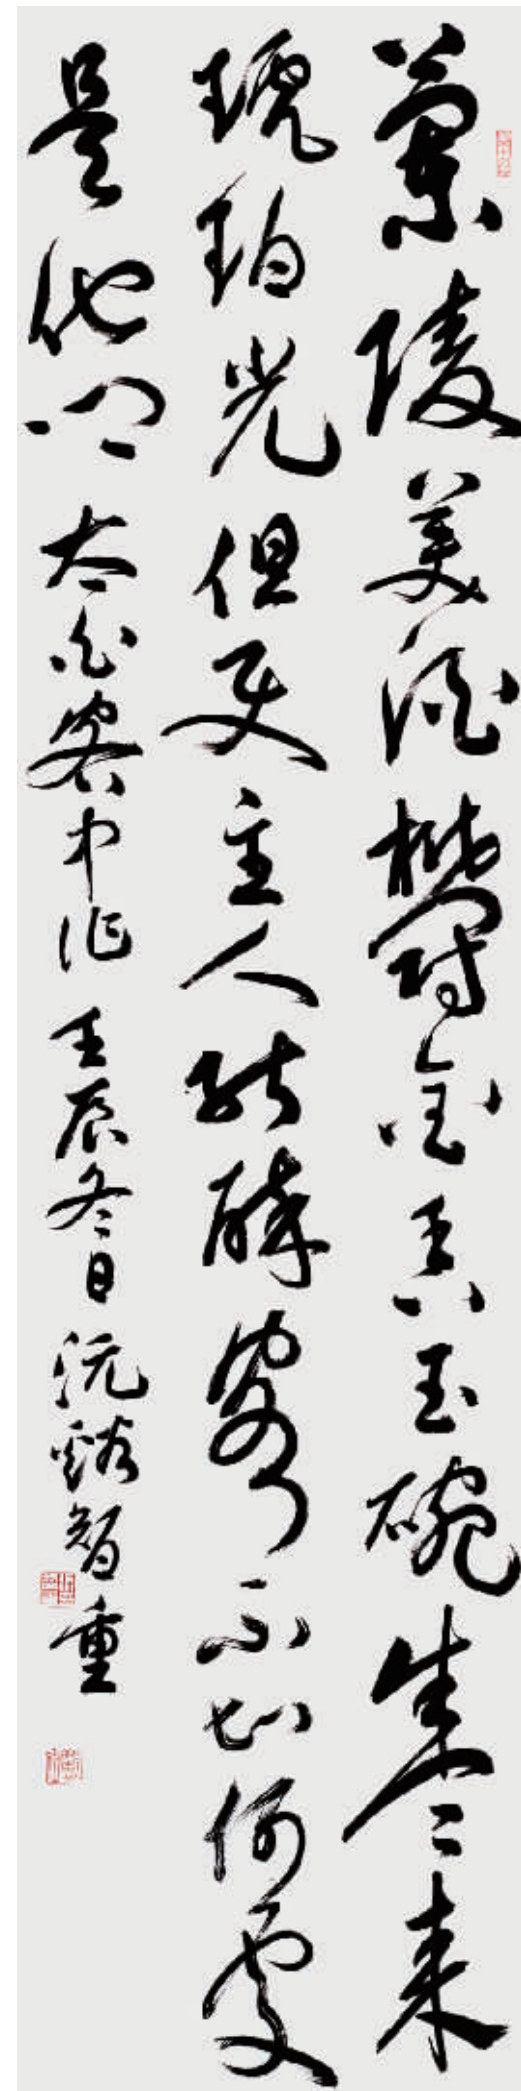 蘭陵美酒鬱金香玉碗盛来
琥珀光但使主人能醉客不知何處
是他鄉 太白客中作 壬辰冬日 沅谿智重